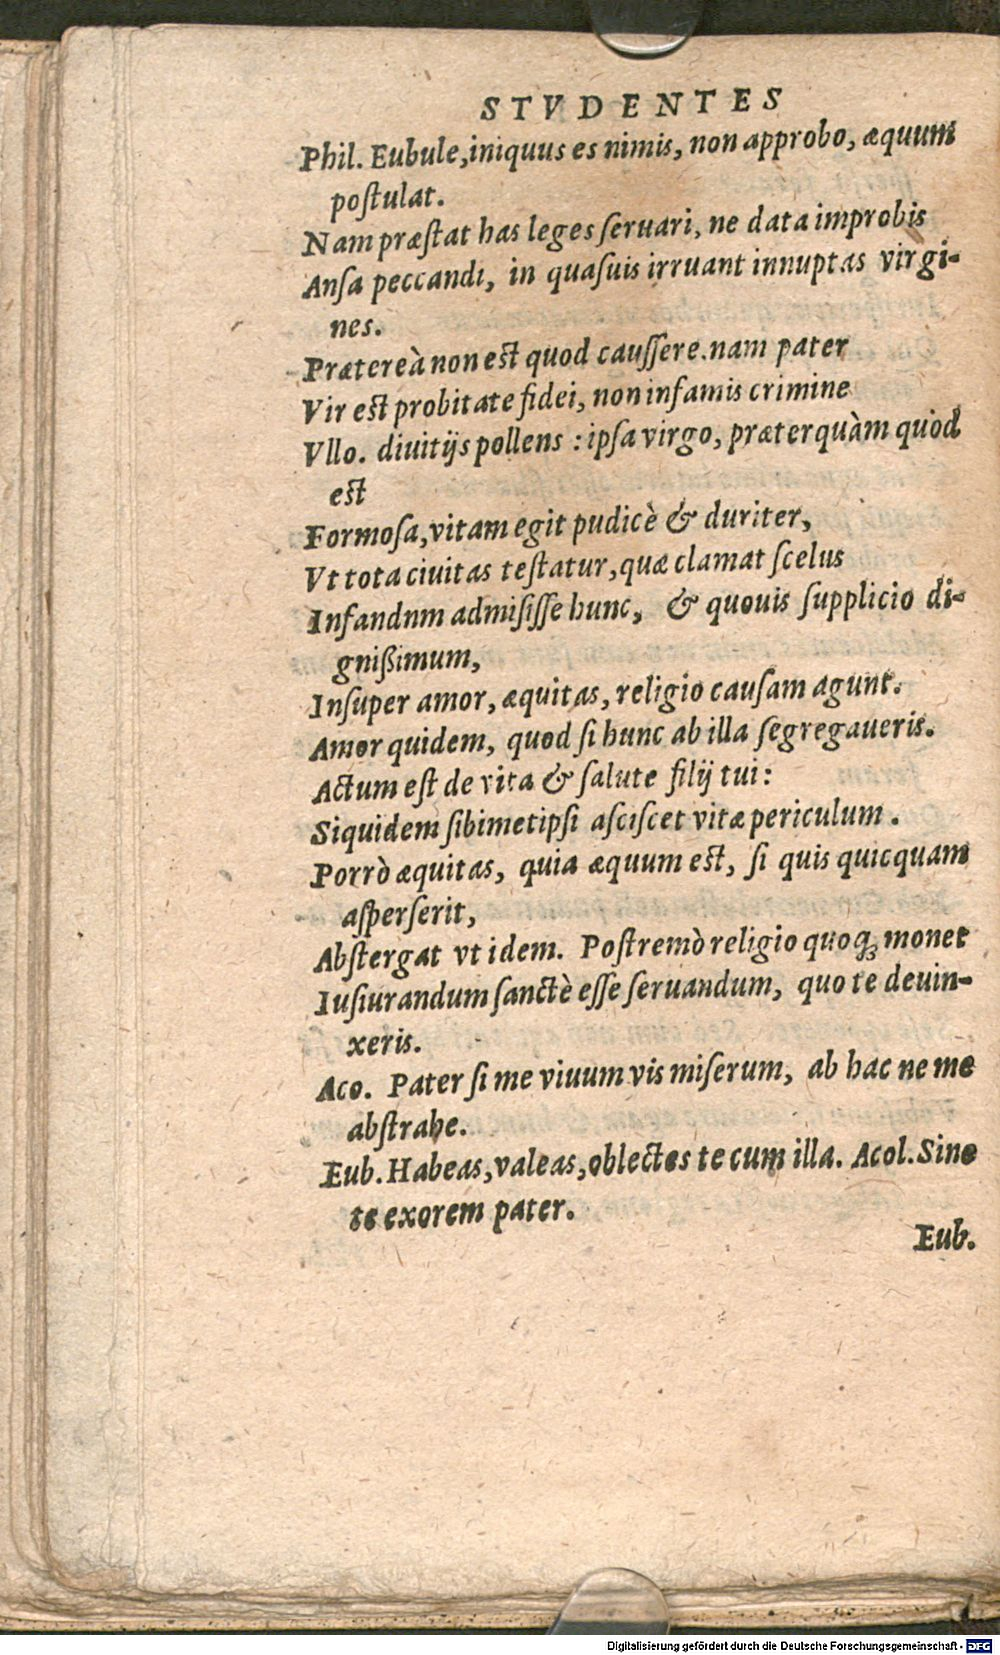 STVDENTES
Phil. Eubule, iniquus es nimis, non approbo, æquum
poſtulat.
Nam præſtat has leges ſeruari, ne data improbis
Anſa peccandi, in quaſuis irruant innuptas virgi-
nes.
Prætereà non eſt quod cauſſere. nam pater
Vir eſt probitate fidei, non infamis crimine
Vllo. diuitijs pollens : ipſa virgo, præterquàm quòd
eſt
Formoſa, vitam egit pudicè & duriter,
Vt tota ciuitas teſtatur, quæ clamat ſcelus
Infandnm admiſiſſe hunc, & quouis ſupplicio di-
gnißimum,
Inſuper amor, æquitas, religio cauſam agunt.
Amor quidem, quod ſi hunc ab illa ſegregaueris.
Actum eſt de vita & ſalute filij tui:
Siquidem ſibimetipſi aſciſcet vitæ periculum.
Porrò æquitas, quia æquum eſt, ſi quis quicquam
aſperſerit,
Abſtergat vt idem. Poſtremò religio quoq; monet
Iuſiurandum ſanctè eſſe ſeruandum, quo te deuin-
xeris.
Aco. Pater ſi me viuum vis miſerum, ab hac ne me
abſtrahe.
Eub. Habeas, valeas, oblectes te cum illa. Acol. Sine
te exorem pater.
Eub.
Digitalisierung gefördert durch die Deutsche Forschungsgemeinschaft - DFG